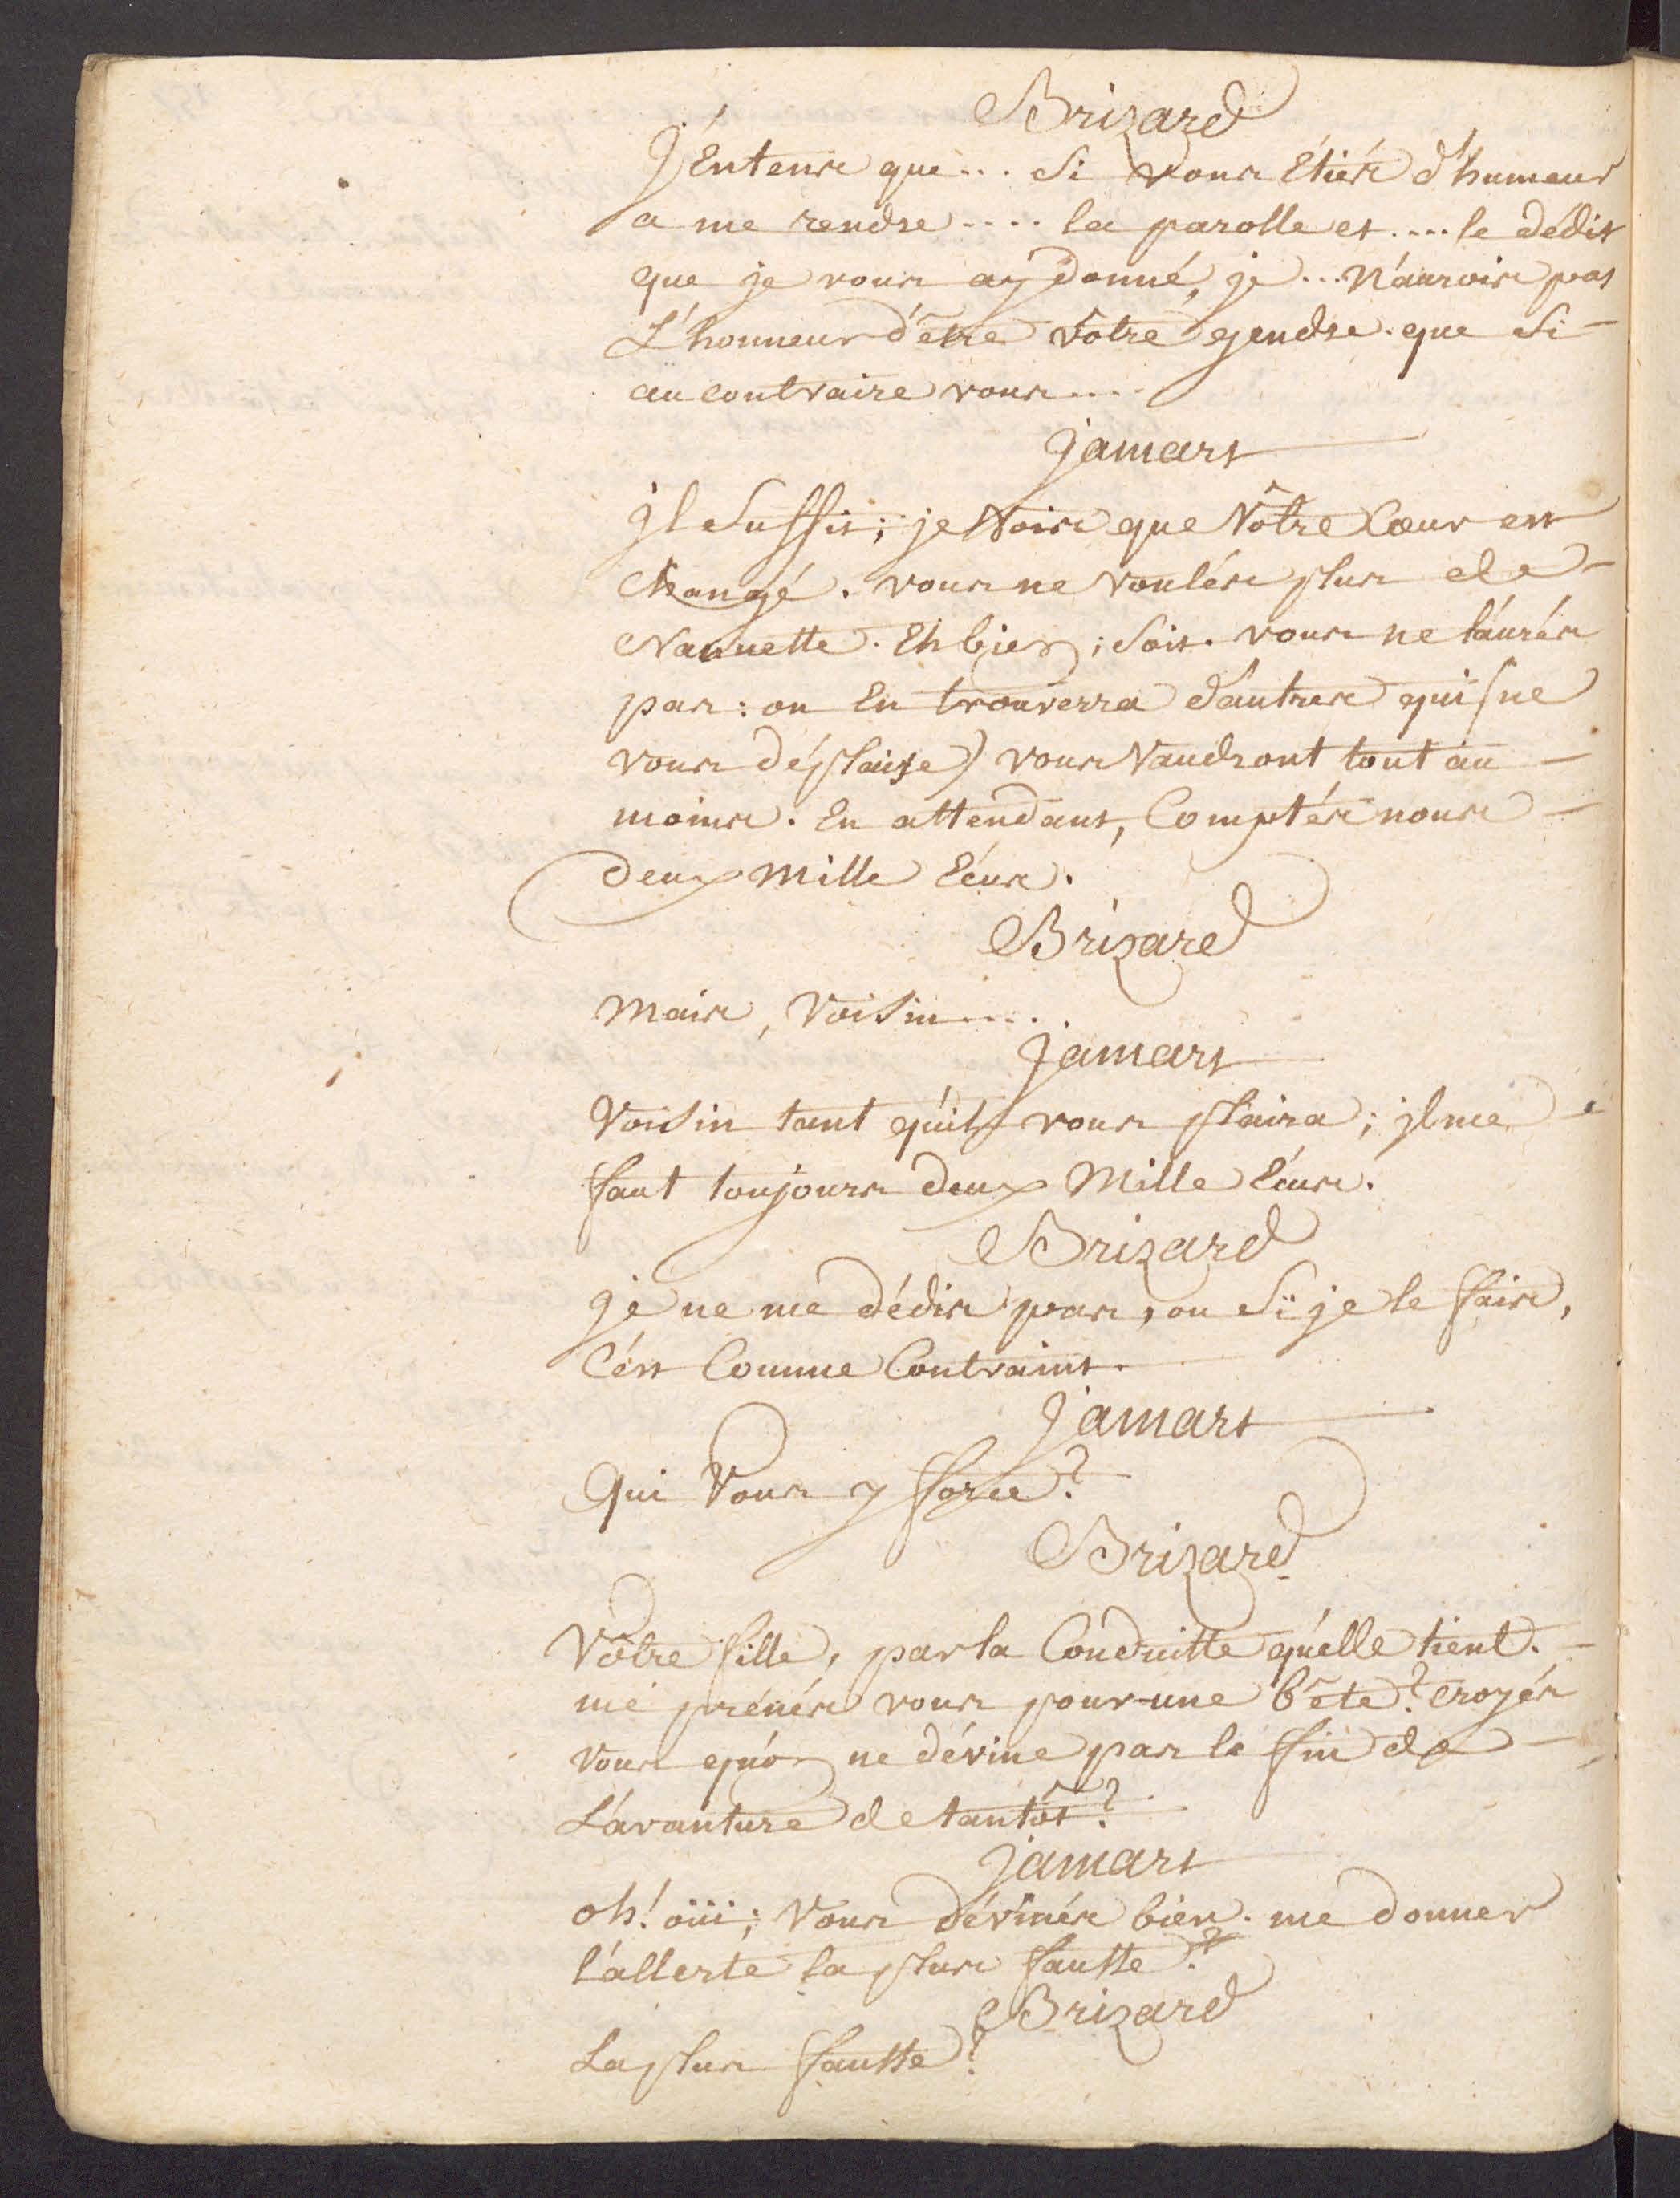 Brizard
J'Entens que... Si vous Étiés d'humeur
a me rendre.... la parolle et.... le dédit
que je vous ay donné, je... N'aurois pas
L'honneur d'être Vôtre gendre. que Si
au contraire vous....
jamart
jl Suffit; je Vois que Vôtre Cœur est
Changé. vous ne voulés plus de
Nannette. Eh bien; Soit. vous ne l'aurés
pas: on En trouverra d'autres qui (ne
vous déplaise) vous Vaudront tout au
moins. En attendant, Comptés nous
deux Mille Ecus.
Brizard
Mais, Voisin....
jamart
Voisin tant qu'il vous plaira; jl me
faut toujours deux Mille Ecus.
Brizard
je ne me dédis pas, ou Si je le fais,
C'est Comme Contraint.
jamart
Qui Vous y force?
Brizard
Vôtre fille, par la Conduitte qu'elle tient.
me prénés vous pour une bête? croyés
vous qu'on ne dévine pas le fin de
L'avanture de tantôt?
jamart
oh! oüi; Vous dévinés bien. me donner
l'allerte la plus fausse?
Brizard
La plus fausse?